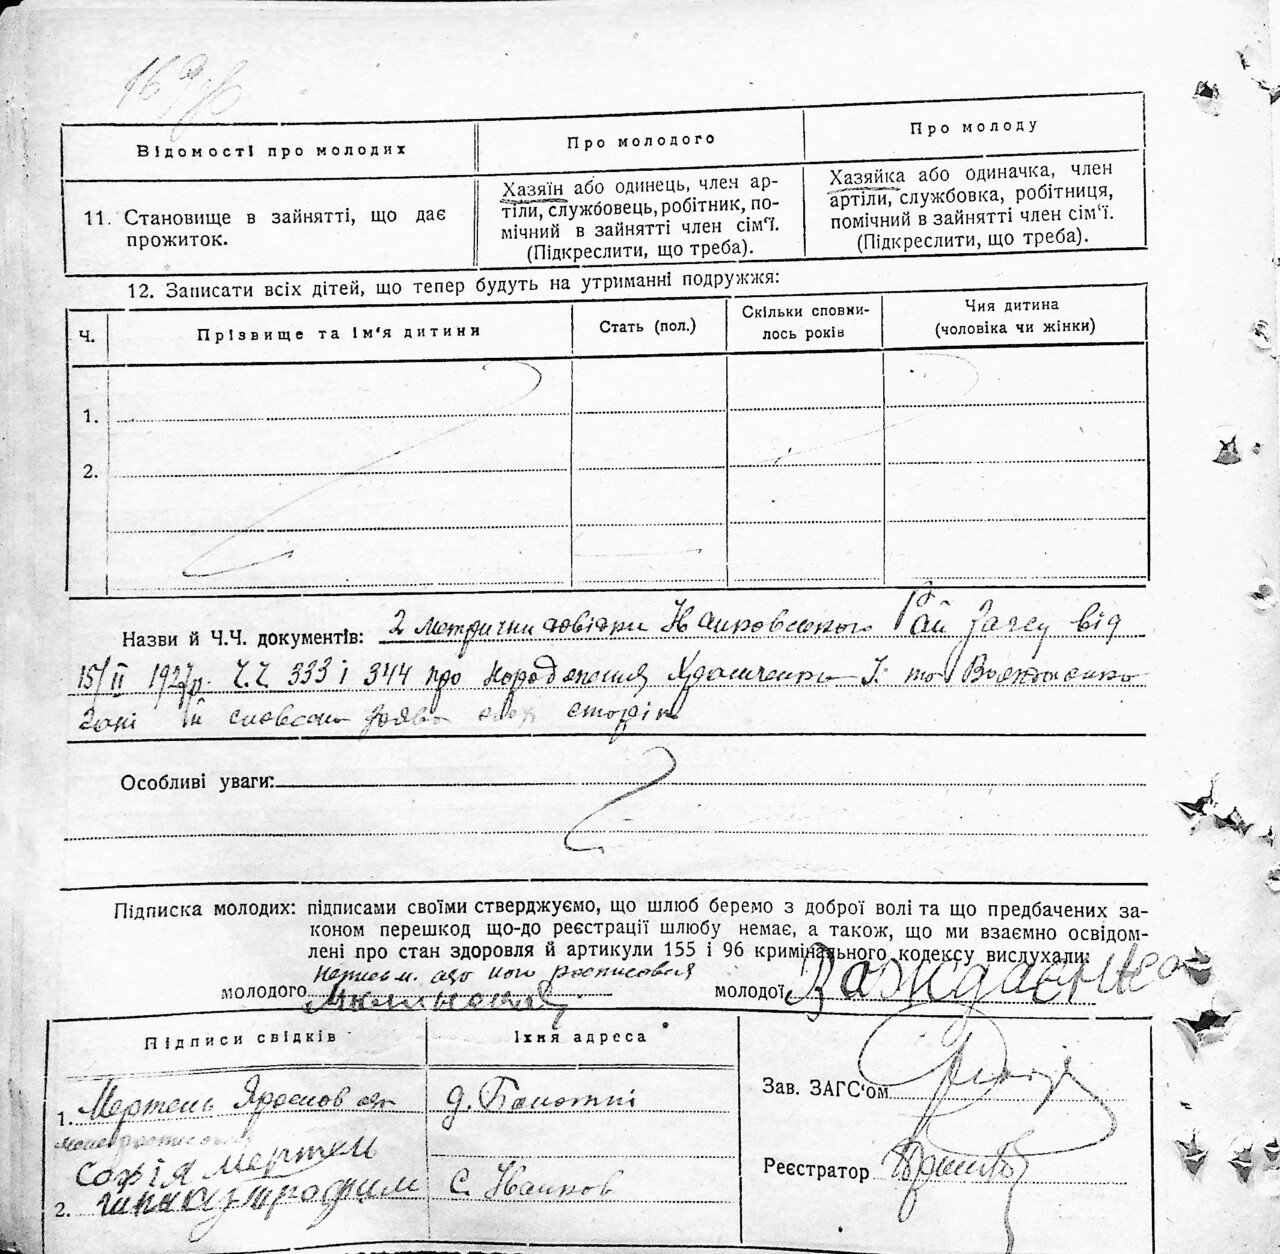 Відомості про молодих
Про молодого
Про молоду
11. Становище в зайнятті, що дає
прожиток.
Хазяїн або одинець, член ар-
тіли, службовець, робітник, по-
мічний в зайнятті член сім'ї.
(Підкреслити, що треба).
Хазяйка або одиначка, член
артіли, службовка, робітниця,
помічний в зайнятті член сім'ї.
(Підкреслити, що треба).
12. Записати всіх дітей, що тепер будуть на утриманні подружжя:
Ч.
Прізвище та ім'я дитини
Стать (пол.)
Скільки сповни-
лось років
Чия дитина
(чоловіка чи жінки)
1.
2.
Назви й Ч.Ч. документів: 2 метричні довідки Рай Загсу від
15/II 1927р. Ч.Ч. 333 і 344 про народження І. та
й словесна заява сторін
Особливі уваги:
Підписка молодих: підписами своїми стверджуємо, що шлюб беремо з доброї волі та що предбачених за-
коном перешкод що-до реєстрації шлюбу немає, а також, що ми взаємно освідом-
лені про стан здоровля й артикули 155 і 96 кримінального кодексу вислухали:
молодого
молодої
Підписи свідків
Їхня адреса
1. Мертень
д.
Софія Мертель
2.
с. Іванков
Зав. ЗАГС'ом
Реєстратор